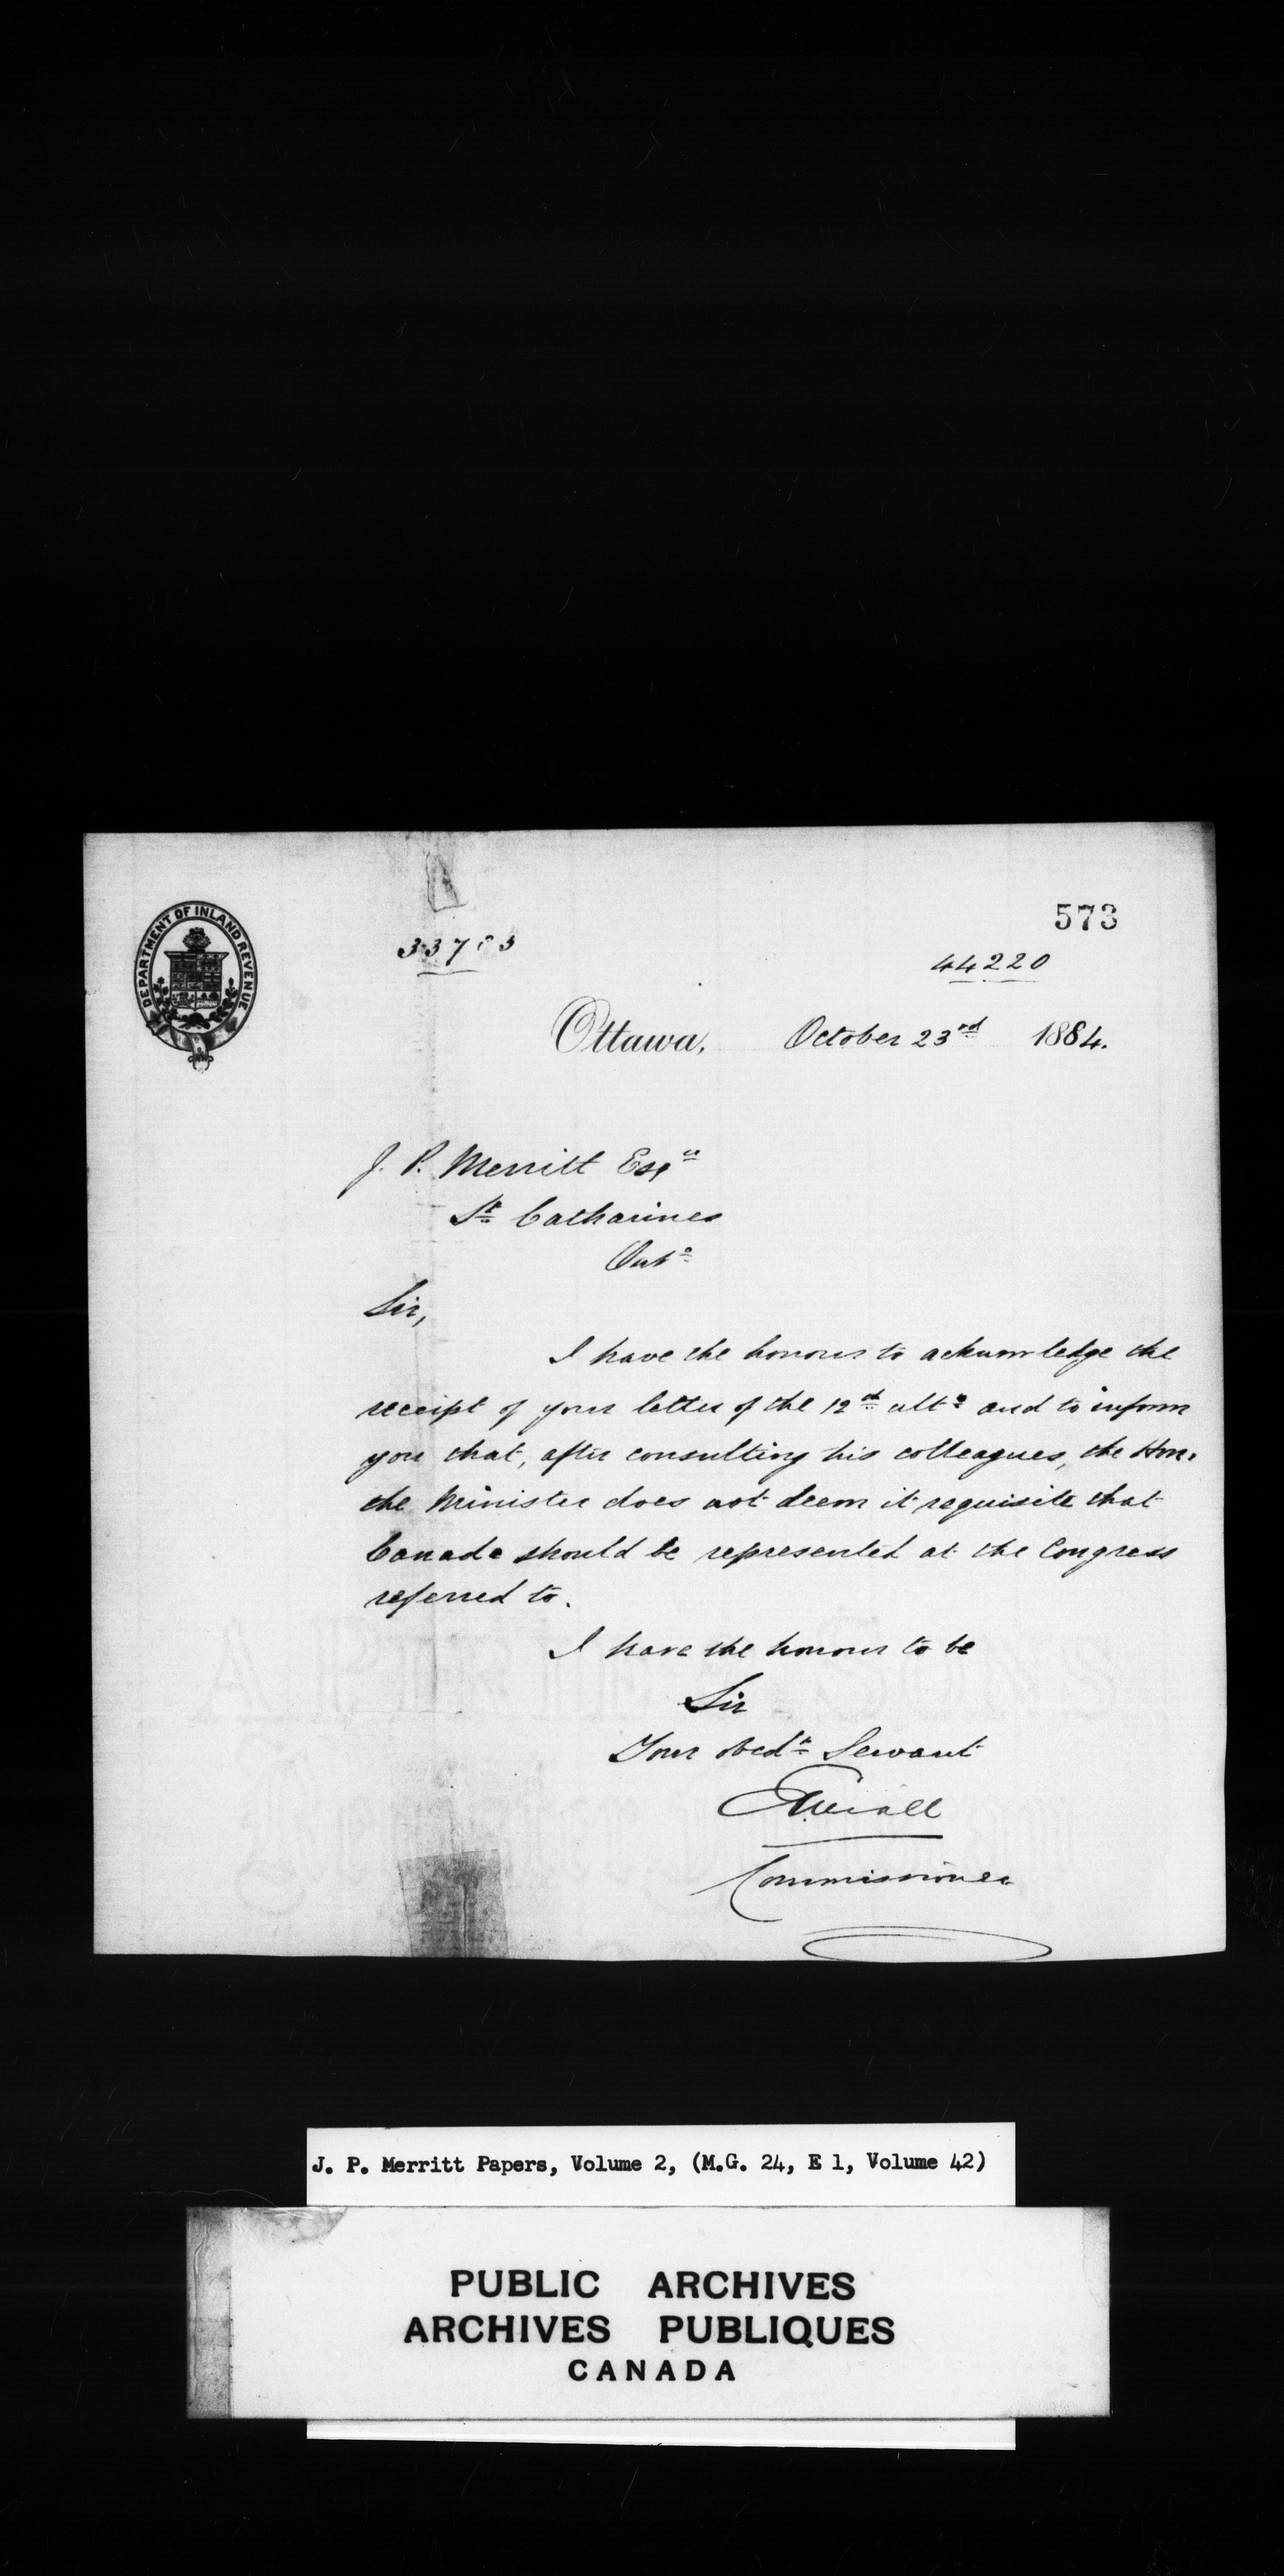 573
DEPARTMENT OF INLAND REVENUE
44220
Ottawa, October 23rd 1884.
J. P. Merritt Esqre
St Catharines
Onto
Sir,
I have the honour to acknowledge the
receipt of your letter of the 12th ulto and to inform
you that, after consulting his colleagues, the Hon.
the Minister does not deem it requisite that
Canada should be represented at the Congress
referred to.
I have the honour to be
Sir
Your obedt Servant
Commissioner
J. P. Merritt Papers, Volume 2, (M.G. 24, E 1, Volume 42)
PUBLIC ARCHIVES
ARCHIVES PUBLIQUES
CANADA